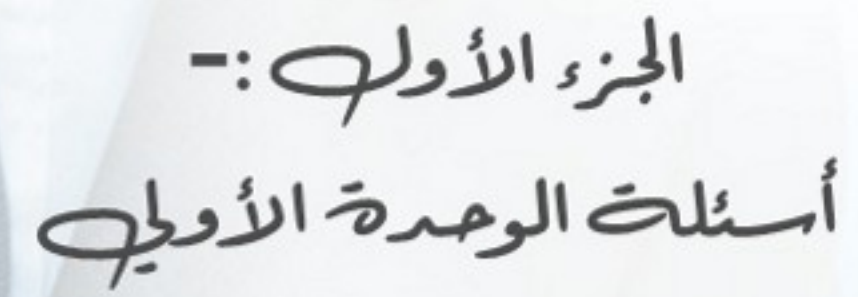 الجزء الأول :-
أسئلة الوحدة الأولي